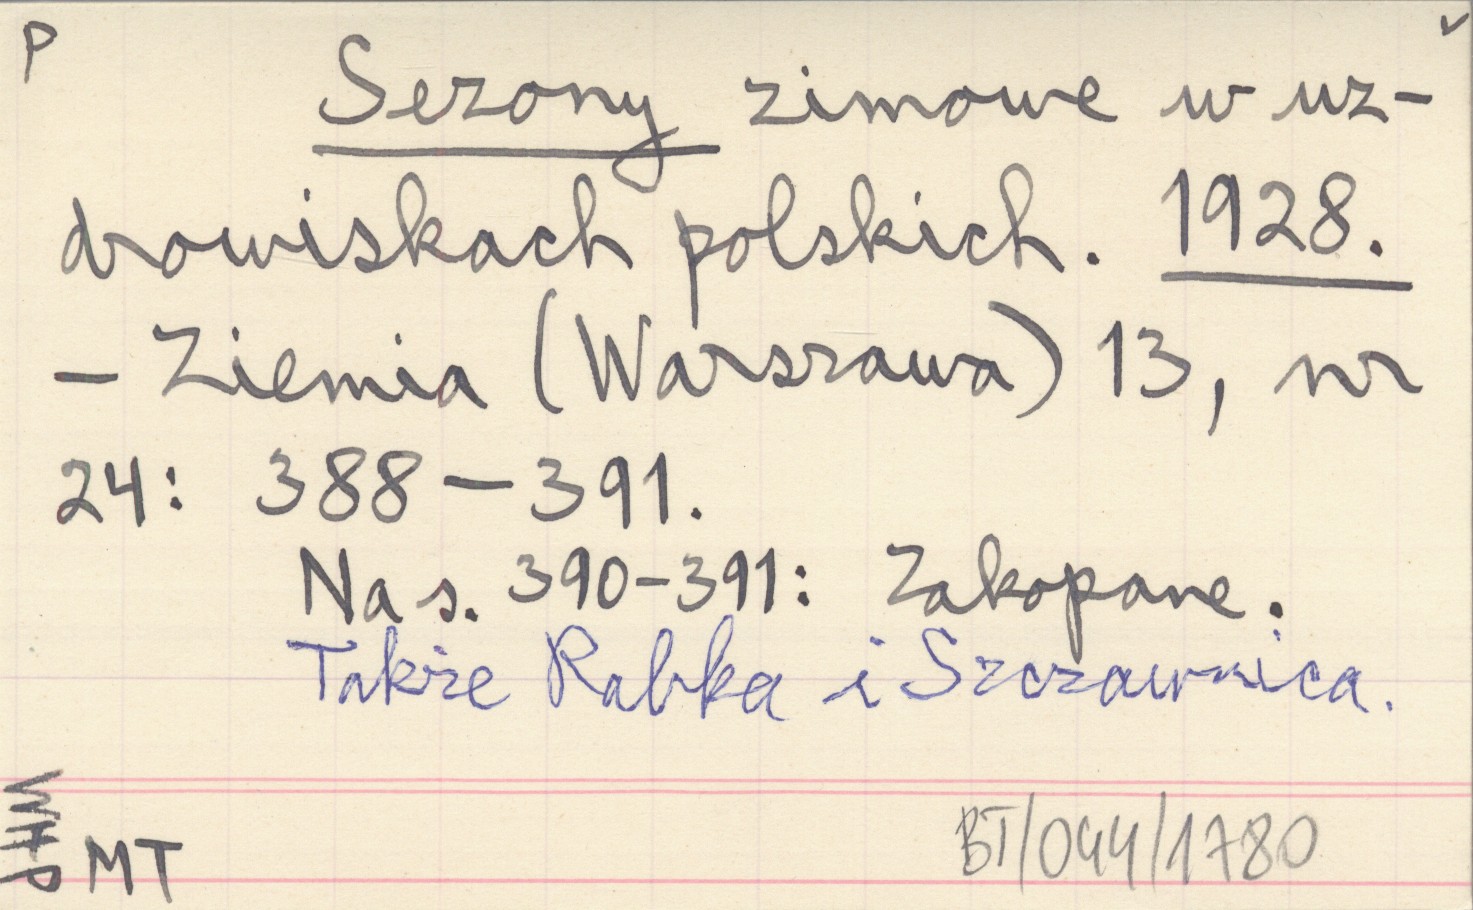 P
Sezony zimowe w uz-
drowiskach polskich. 1928.
– Ziemia (Warszawa) 13, nr
24: 388–391.
Na s. 390-391: Zakopane.
Także Rabka i Szczawnica.
MT
BT/044/1780